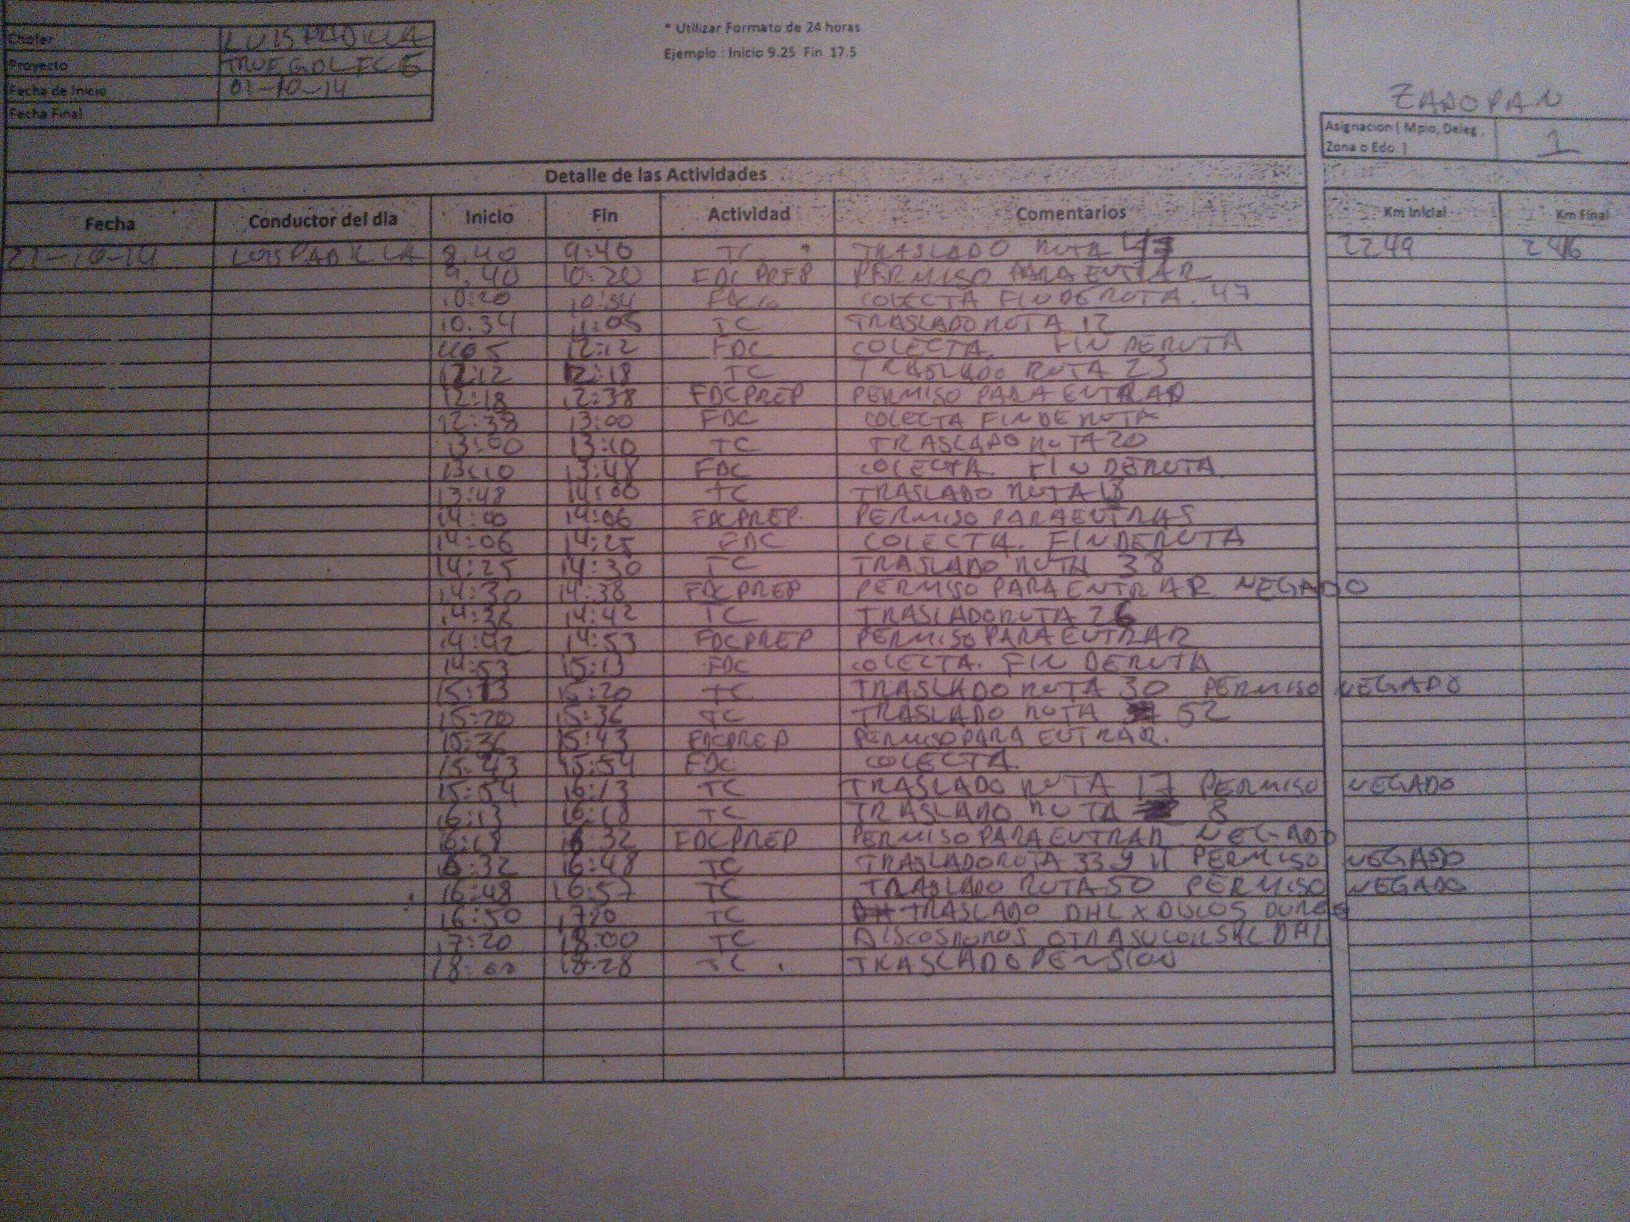 * Utilizar Formato de 24 horas
Ejemplo : Inicio 9.25 Fin 17.5
Chofer LUIS PADILLA
Proyecto
Fecha de Inicio 01-10-14
Fecha Final
ZAPOPAN
Asignacion ( Mpio, Deleg, Zona o Edo. ) 1
Detalle de las Actividades
Fecha Conductor del dia Inicio Fin Actividad Comentarios Km Inicial Km Final
LUIS PADILLA 8.40 9:40 TC TRASLADO RUTA 47 2249
9.40 10:20 FDCPREP PERMISO PARA ENTRAR
10:20 10:34 COLECTA FIN DE RUTA. 47
10.34 11:05 TC TRASLADO RUTA 12
1105 12:12 FDC COLECTA. FIN DE RUTA
12:12 12:18 TC TRASLADO RUTA 23
12:18 12:38 FDCPREP PERMISO PARA ENTRAR
12:38 13:00 FDC COLECTA FIN DE RUTA
13:00 13:10 TC TRASLADO RUTA 20
13:10 13:48 FDC COLECTA FIN DE RUTA
13:48 14:00 TC TRASLADO RUTA 18
14:00 14:06 FDCPREP. PERMISO PARA ENTRAR
14:06 14:25 FDC COLECTA. FIN DE RUTA
14:25 14:30 TC TRASLADO RUTA 38
14:30 14:38 FDCPREP PERMISO PARA ENTRAR NEGADO
14:38 14:42 TC TRASLADO RUTA 26
14:42 14:53 FDCPREP PERMISO PARA ENTRAR
14:53 15:13 FDC COLECTA. FIN DE RUTA
15:13 15:20 TC TRASLADO RUTA 30 PERMISO NEGADO
15:20 15:36 TC TRASLADO RUTA 52
15:36 15:43 FDCPREP PERMISO PARA ENTRAR.
15:43 15:54 FDC COLECTA.
15:54 16:13 TC TRASLADO RUTA 17 PERMISO NEGADO
16:13 16:18 TC TRASLADO RUTA 8
16:18 16:32 FDCPREP PERMISO PARA ENTRAR NEGADO
16:32 16:48 TC TRASLADO RUTA 33 y 11 PERMISO NEGADO
16:48 16:57 TC TRASLADO RUTA 50 PERMISO NEGADO
16:50 1720 TC TRASLADO DHL X DISCOS DUROS
17:20 18:00 TC DISCOS DUROS OTRA SUCURSAL DHL
18:00 18:28 TC. TRASLADO PENSION